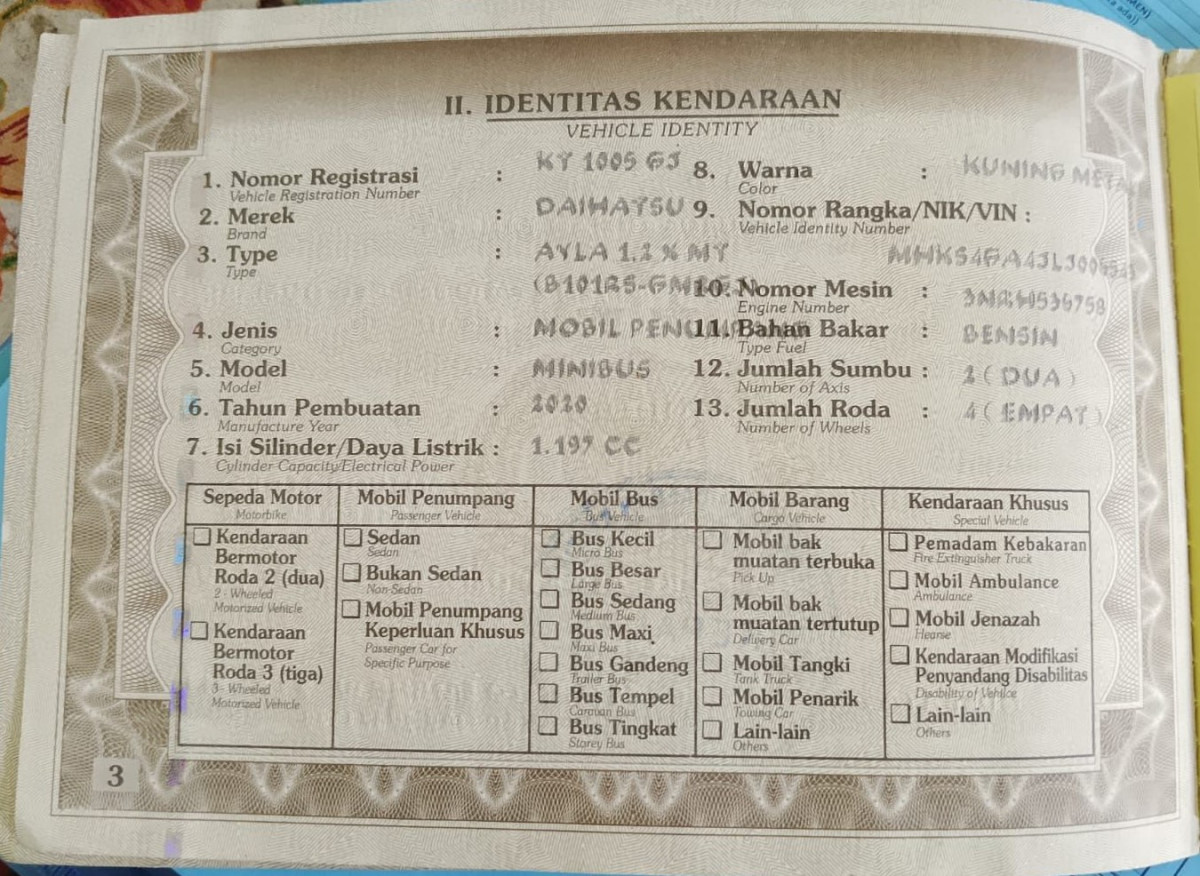 II. IDENTITAS KENDARAAN
VEHICLE IDENTITY
1. Nomor Registrasi : KT 1005 GJ
Vehicle Registration Number
2. Merek : DAIHATSU
Brand
3. Type : AYLA 1.2 X MT
Type
4. Jenis : MOBIL
Category
5. Model : MINIBUS
Model
6. Tahun Pembuatan : 2020
Manufacture Year
7. Isi Silinder/Daya Listrik : 1.197 CC
Cylinder Capacity/Electrical Power
8. Warna : KUNING
Color
9. Nomor Rangka/NIK/VIN :
Vehicle Identity Number
10. Nomor Mesin :
Engine Number
11. Bahan Bakar : BENSIN
Type Fuel
12. Jumlah Sumbu : 2 ( DUA )
Number of Axis
13. Jumlah Roda : 4 ( EMPAT )
Number of Wheels
Sepeda Motor
Motorbike
Kendaraan
Bermotor
Roda 2 (dua)
2 - Wheeled
Motorized Vehicle
Kendaraan
Bermotor
Roda 3 (tiga)
3 - Wheeled
Motorized Vehicle
Mobil Penumpang
Passenger Vehicle
Sedan
Sedan
Bukan Sedan
Non-Sedan
Mobil Penumpang
Keperluan Khusus
Passenger Car for
Specific Purpose
Mobil Bus
Bus Vehicle
Bus Kecil
Micro Bus
Bus Besar
Large Bus
Bus Sedang
Medium Bus
Bus Maxi
Maxi Bus
Bus Gandeng
Trailer Bus
Bus Tempel
Caravan Bus
Bus Tingkat
Storey Bus
Mobil Barang
Cargo Vehicle
Mobil bak
muatan terbuka
Pick Up
Mobil bak
muatan tertutup
Delivery Car
Mobil Tangki
Tank Truck
Mobil Penarik
Towing Car
Lain-lain
Others
Kendaraan Khusus
Special Vehicle
Pemadam Kebakaran
Fire Extinguisher Truck
Mobil Ambulance
Ambulance
Mobil Jenazah
Hearse
Kendaraan Modifikasi
Penyandang Disabilitas
Disability of Vehilce
Lain-lain
Others
3